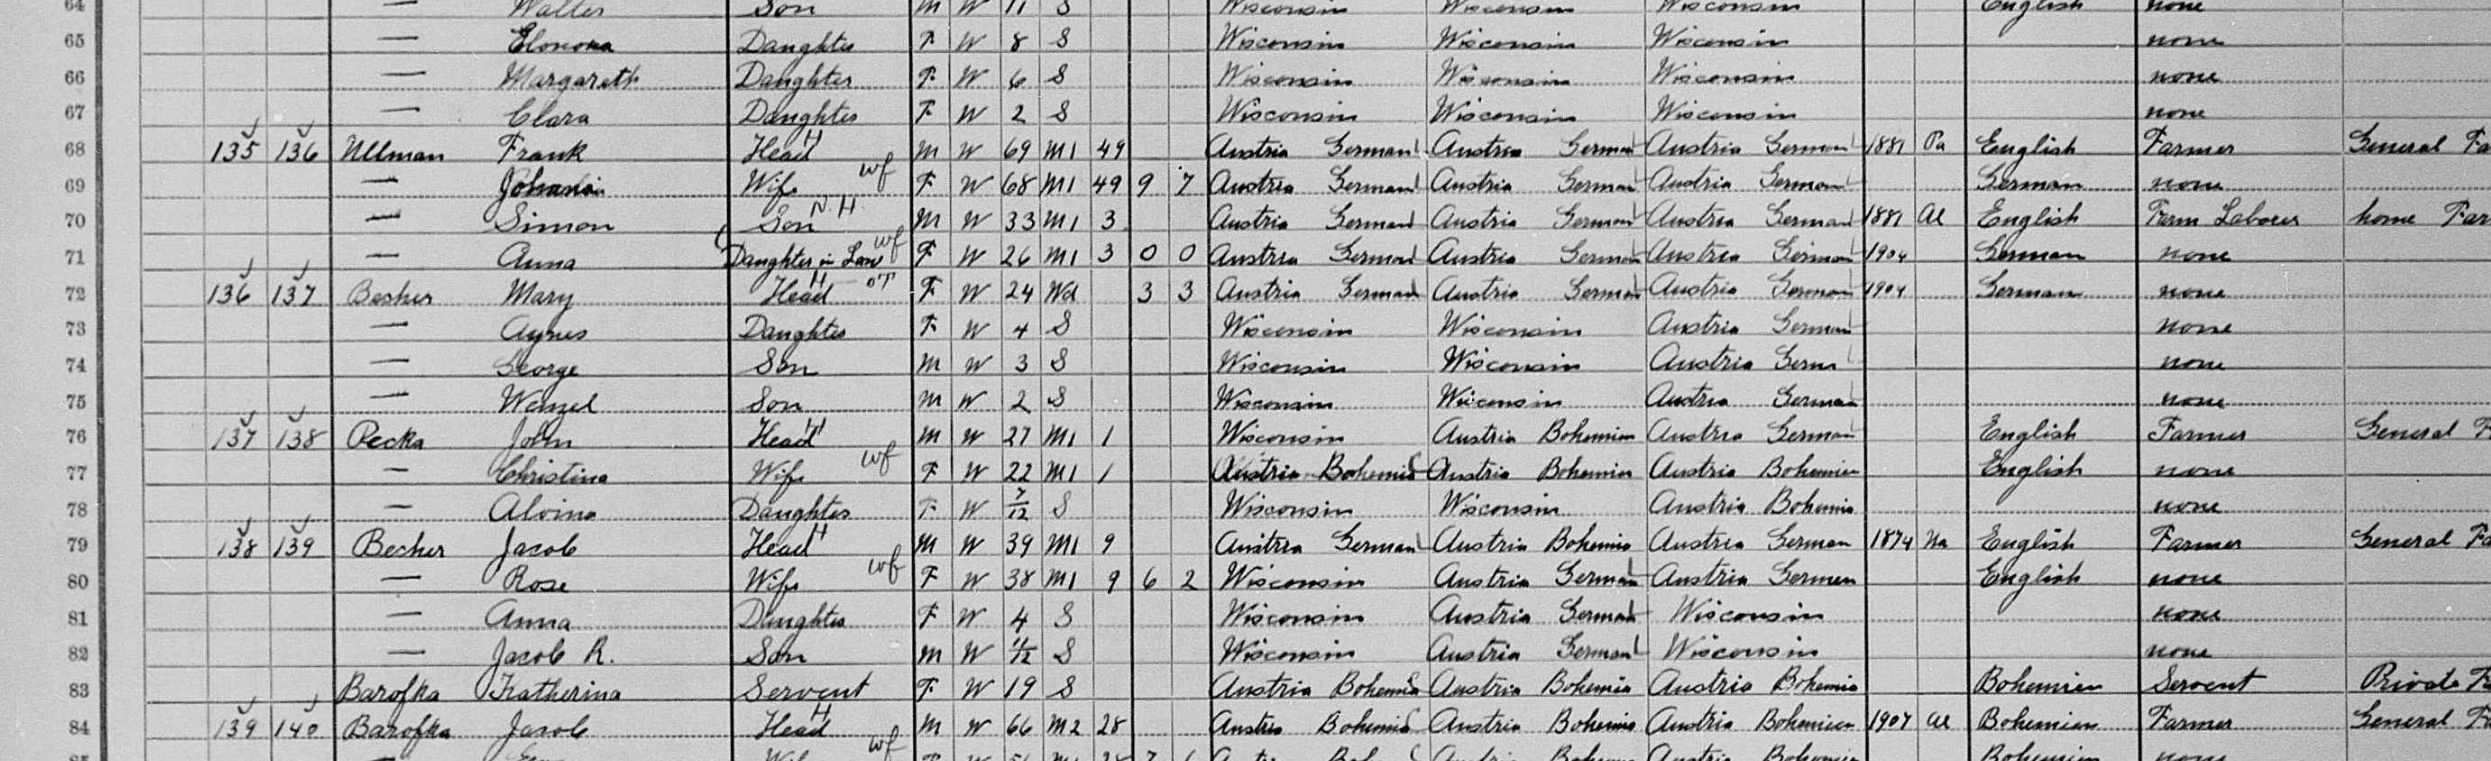 64 — Walter Son M W 11 S Wisconsin Wisconsin Wisconsin English none
65 — Elonora Daughter F W 8 S Wisconsin Wisconsin Wisconsin none
66 — Margareth Daughter F W 6 S Wisconsin Wisconsin Wisconsin none
67 — Clara Daughter F W 2 S Wisconsin Wisconsin Wisconsin none
68 135 136 Ullman Frank Head H M W 69 M1 49 Austria German Austria German Austria German 1881 Pa English Farmer General Fa
69 — Wife wf F W 68 M1 49 9 7 Austria German Austria German Austria German German none
70 — Simon Son N.H. M W 33 M1 3 Austria German Austria German Austria German 1881 Al English Farm Laborer home Far
71 — Anna Daughter in Law wf F W 26 M1 3 0 0 Austria German Austria German Austria German 1904 German none
72 136 137 Besher Mary Head H OT F W 24 Wd 3 3 Austria German Austria German Austria German 1904 German none
73 — Agnes Daughter F W 4 S Wisconsin Wisconsin Austria German none
74 — George Son M W 3 S Wisconsin Wisconsin Austria Germ none
75 — Wenzel Son M W 2 S Wisconsin Wisconsin Austria German none
76 137 138 Pecka John Head H M W 27 M1 1 Wisconsin Austria Bohemian Austria German English Farmer General F
77 — Christina Wife wf F W 22 M1 1 Austria Bohemia Austria Bohemian Austria Bohemian English none
78 — Alvina Daughter F W 7/12 S Wisconsin Wisconsin Austria Bohemia none
79 138 139 Becher Jacob Head H M W 39 M1 9 Austria German Austria Bohemia Austria German 1874 Na English Farmer General Fa
80 — Rose Wife wf F W 38 M1 9 6 2 Wisconsin Austria German Austria German English none
81 — Anna Daughter F W 4 S Wisconsin Austria German Wisconsin none
82 — Jacob R. Son M W S Wisconsin Austria German Wisconsin none
83 Barofka Katherina Servent F W 19 S Austria Bohemia Austria Bohemia Austria Bohemia Bohemian Servent Private F
84 139 140 Barofka Jacob Head H M W 66 M2 28 Austria Bohemia Austria Bohemia Austria Bohemian 1907 Al Bohemian Farmer General F
85 — wf F W Bohemian none